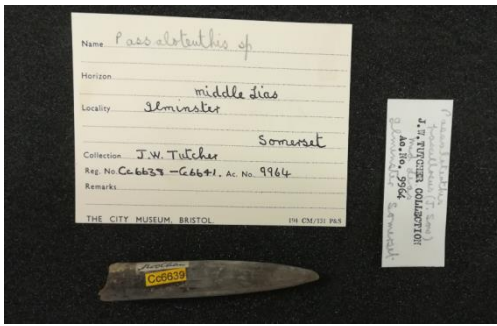 Name Passaloteuthis sp
Horizon middle Lias
Locality Ilminster
Somerset
Collection J.W. Tutcher
Reg. No. Cc6638 - Cc6641. Ac. No. 9964
Remarks
THE CITY MUSEUM, BRISTOL. 194 CM/131 P&S
Passaloteuthis
(J. Sow)
J.W. TUTCHER COLLECTION
middle Lias
Ac. No. 9964
Ilminster Somerset
Cc6639